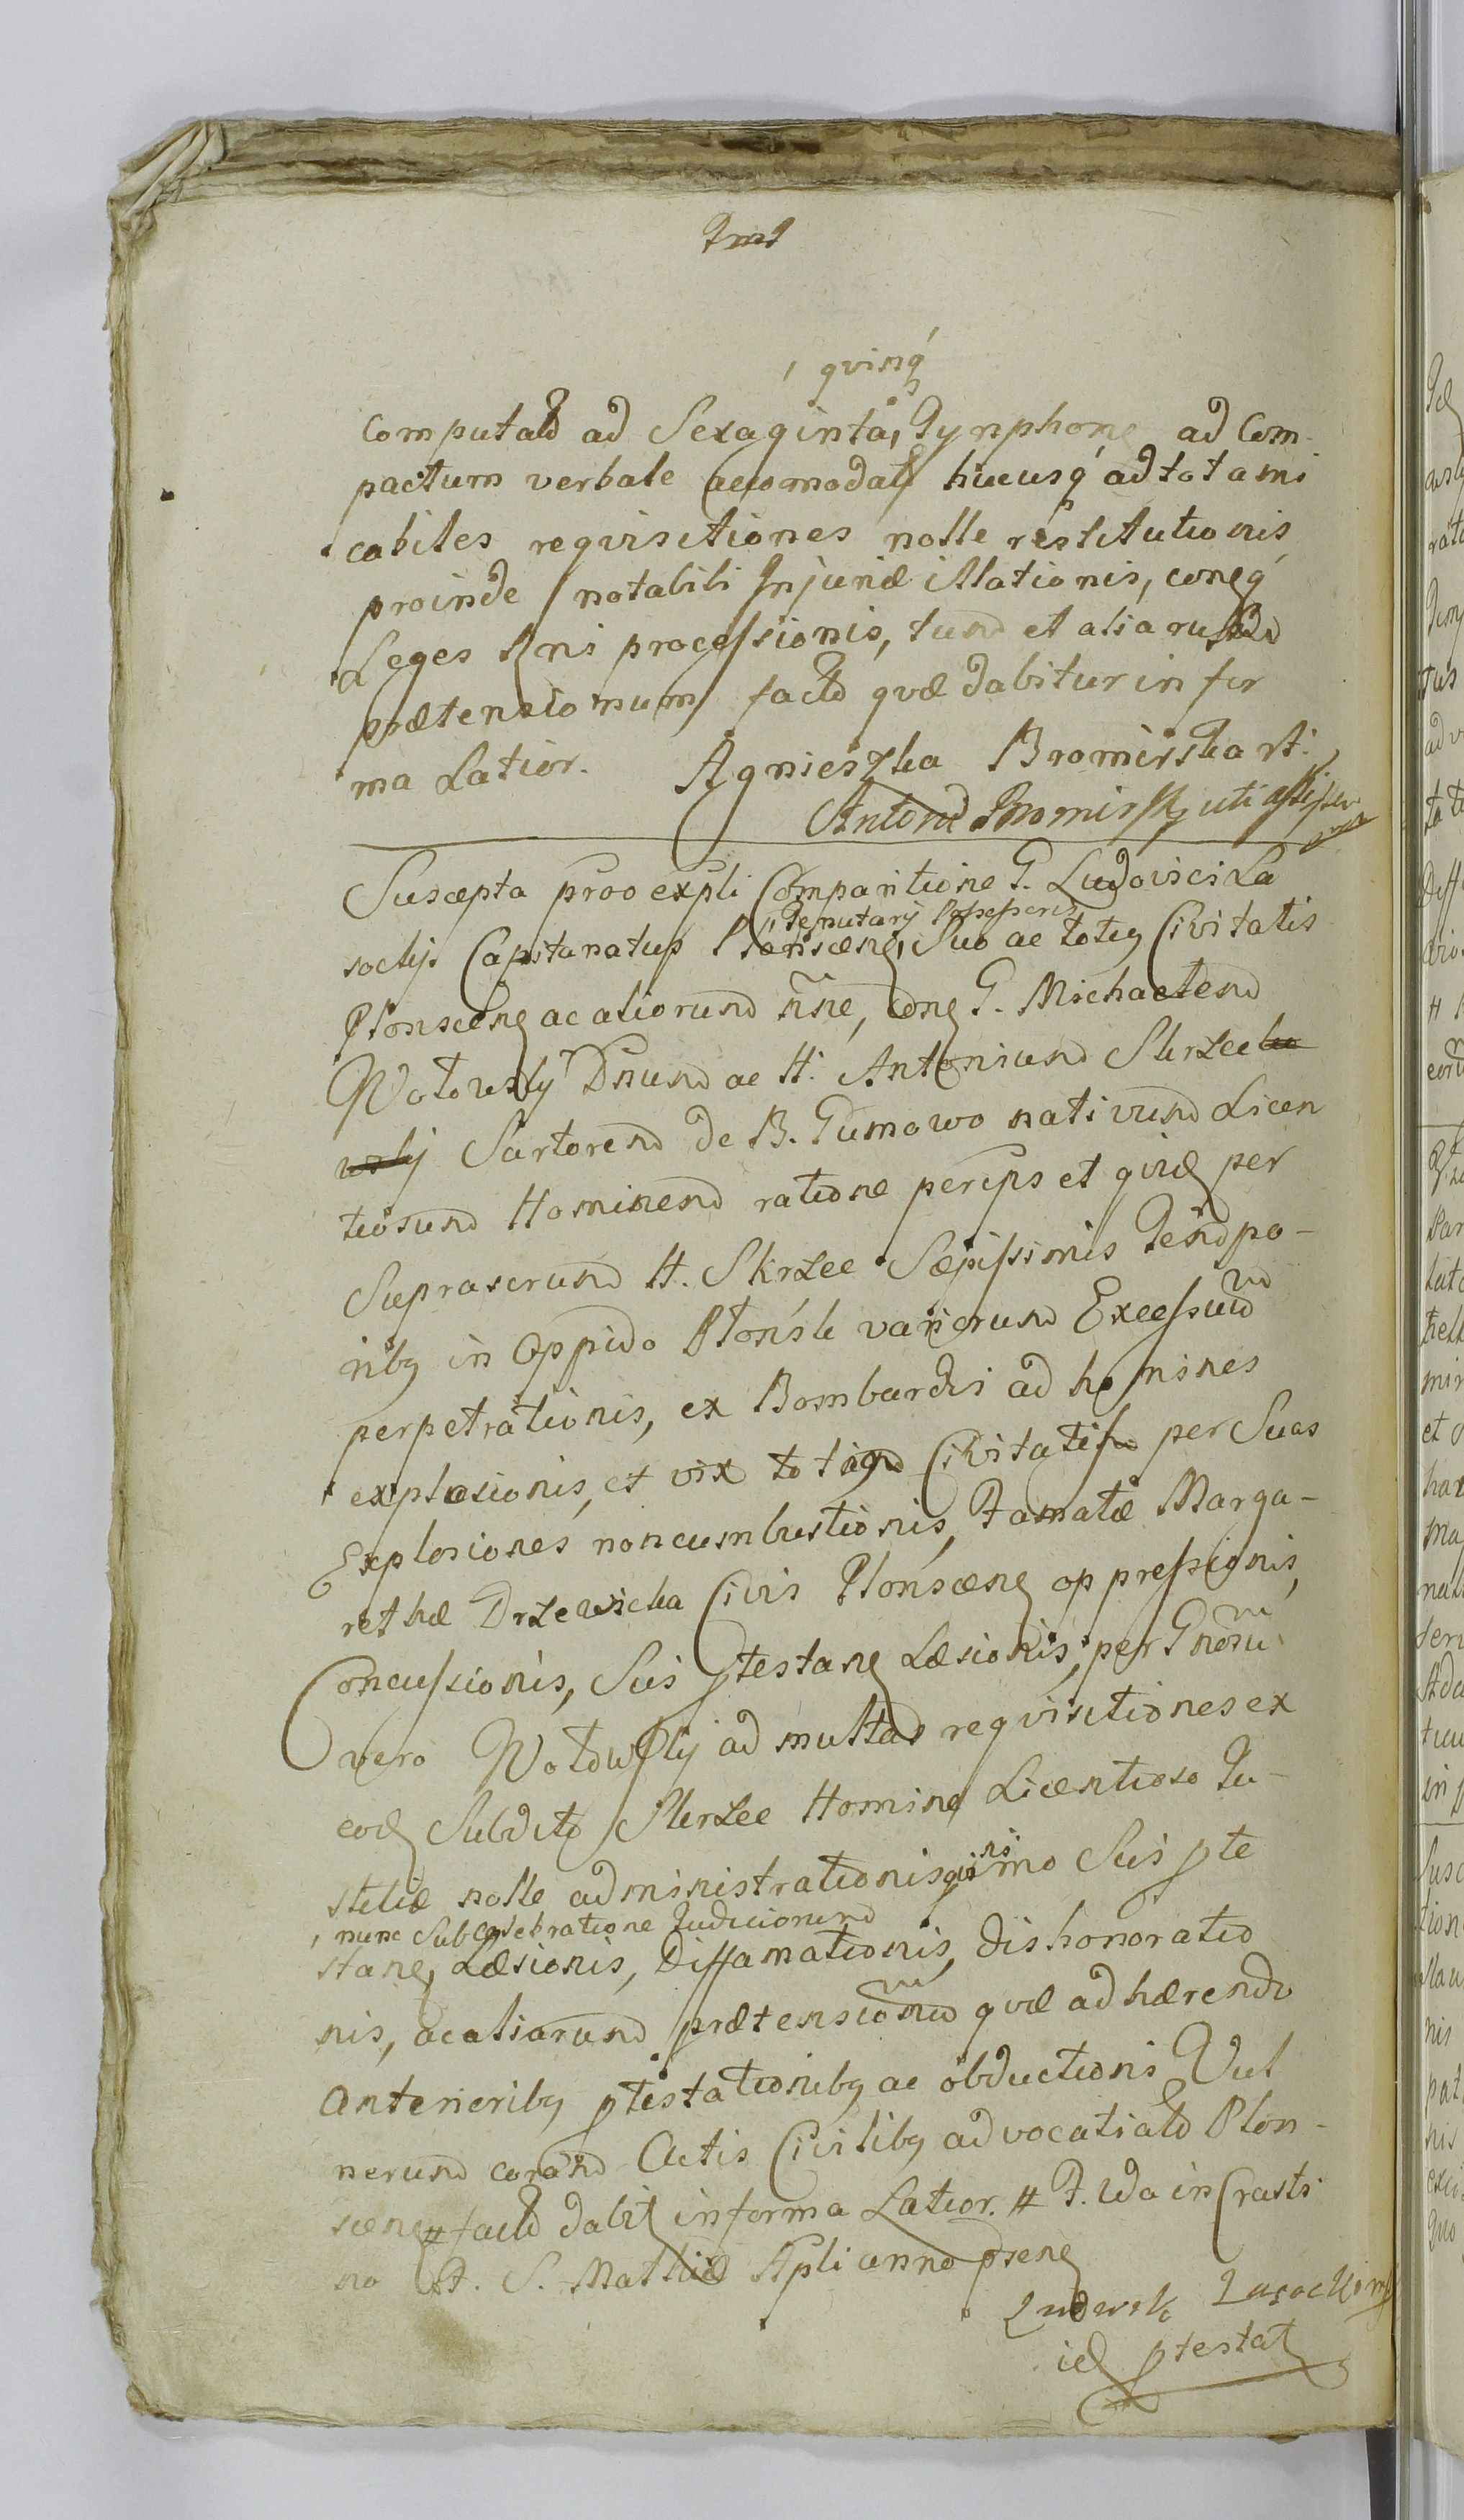 quinq
Computat ad Sexaginta, Tynphonę ad Com-
pactum verbale accomodatę hucusq ad tot ami
cabiles reqvisitiones nolle restitutionis
proinde notabili Injuriæ illationis, coneq
Leges Rgni processionis, tum et aliarum
prætensionum fact qvæ dabitur in for
ma Latior. Agnieszka Bromirska st:
Anton Bromirsky uti assistens
Suscepta pro expli Comparitione G. Ludovici La
, Tenutarij Possessoris
sockij Capitanatus Płonscens, Suo ac totiq Civitatis
Płonscens ac aliorum nne, cong G. Michaelem
Wołowsky Dnum ac H. Antonium Skrzee
Sartorem de B. Gumowo nativum Licen
tiosum Hominem ratione percips et qvid per
Suprascrum H. Skrzee Sæpissimis Tempo-
ribq in Oppido Płońsk variorum Excessuum
perpetrationis, ex Bombardis ad homines
explosionis, et vix totiq Civitatis per Suas
Explosiones noncumbustionis, Famatæ Marga-
rethæ Drzewicka Civis Płonscens oppressionis,
Concussionis, Sui ptestans Læsionis, per Gnosu
vero Wołowskij ad multas reqvisitiones ex
eod Subdito Skrzee Homine Licentioso Ju-
stitiæ nolle administrationis qvinimo Sui pte
, nunc Sub celebratione Judiciorum
stans, Læsionis, Diffamationis, dishonoratio
nis, ac aliarum prætensionum qvæ adhærendo
Anterioribq ptestationibq ac obductionis Vul
nerum coram Actis Civilibq advocatial Płon-
scens # fact dabit in forma Latior. # F. Wa in Crasti
no F. S. Mathiæ Apli anno psens
Ludwik Lasocki mp
id ptestat